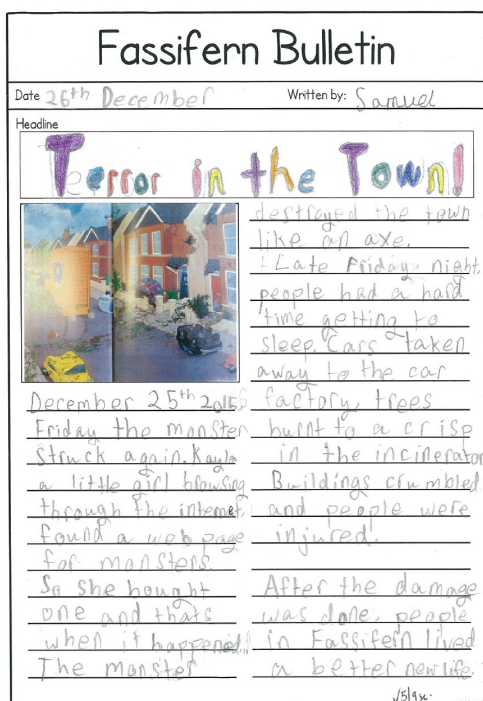 Fassifern Bulletin
Date 26th December Written by: Samuel
Headline
Terror in the Town!
December 25th 2015
Friday the monster
struck again. Kayla
a little girl browsing
through the internet,
found a web page
for monsters.
So she bought
one and thats
when it happened!
The monster
destroyed the town
like an axe.
Late Friday night,
people had a hard
time getting to
sleep. Cars taken
away to the car
factory, trees
burnt to a crisp
in the incinerator
Buildings crumbled
and people were
injured.
After the damage
was done, people
in Fassifern lived
a better new life.